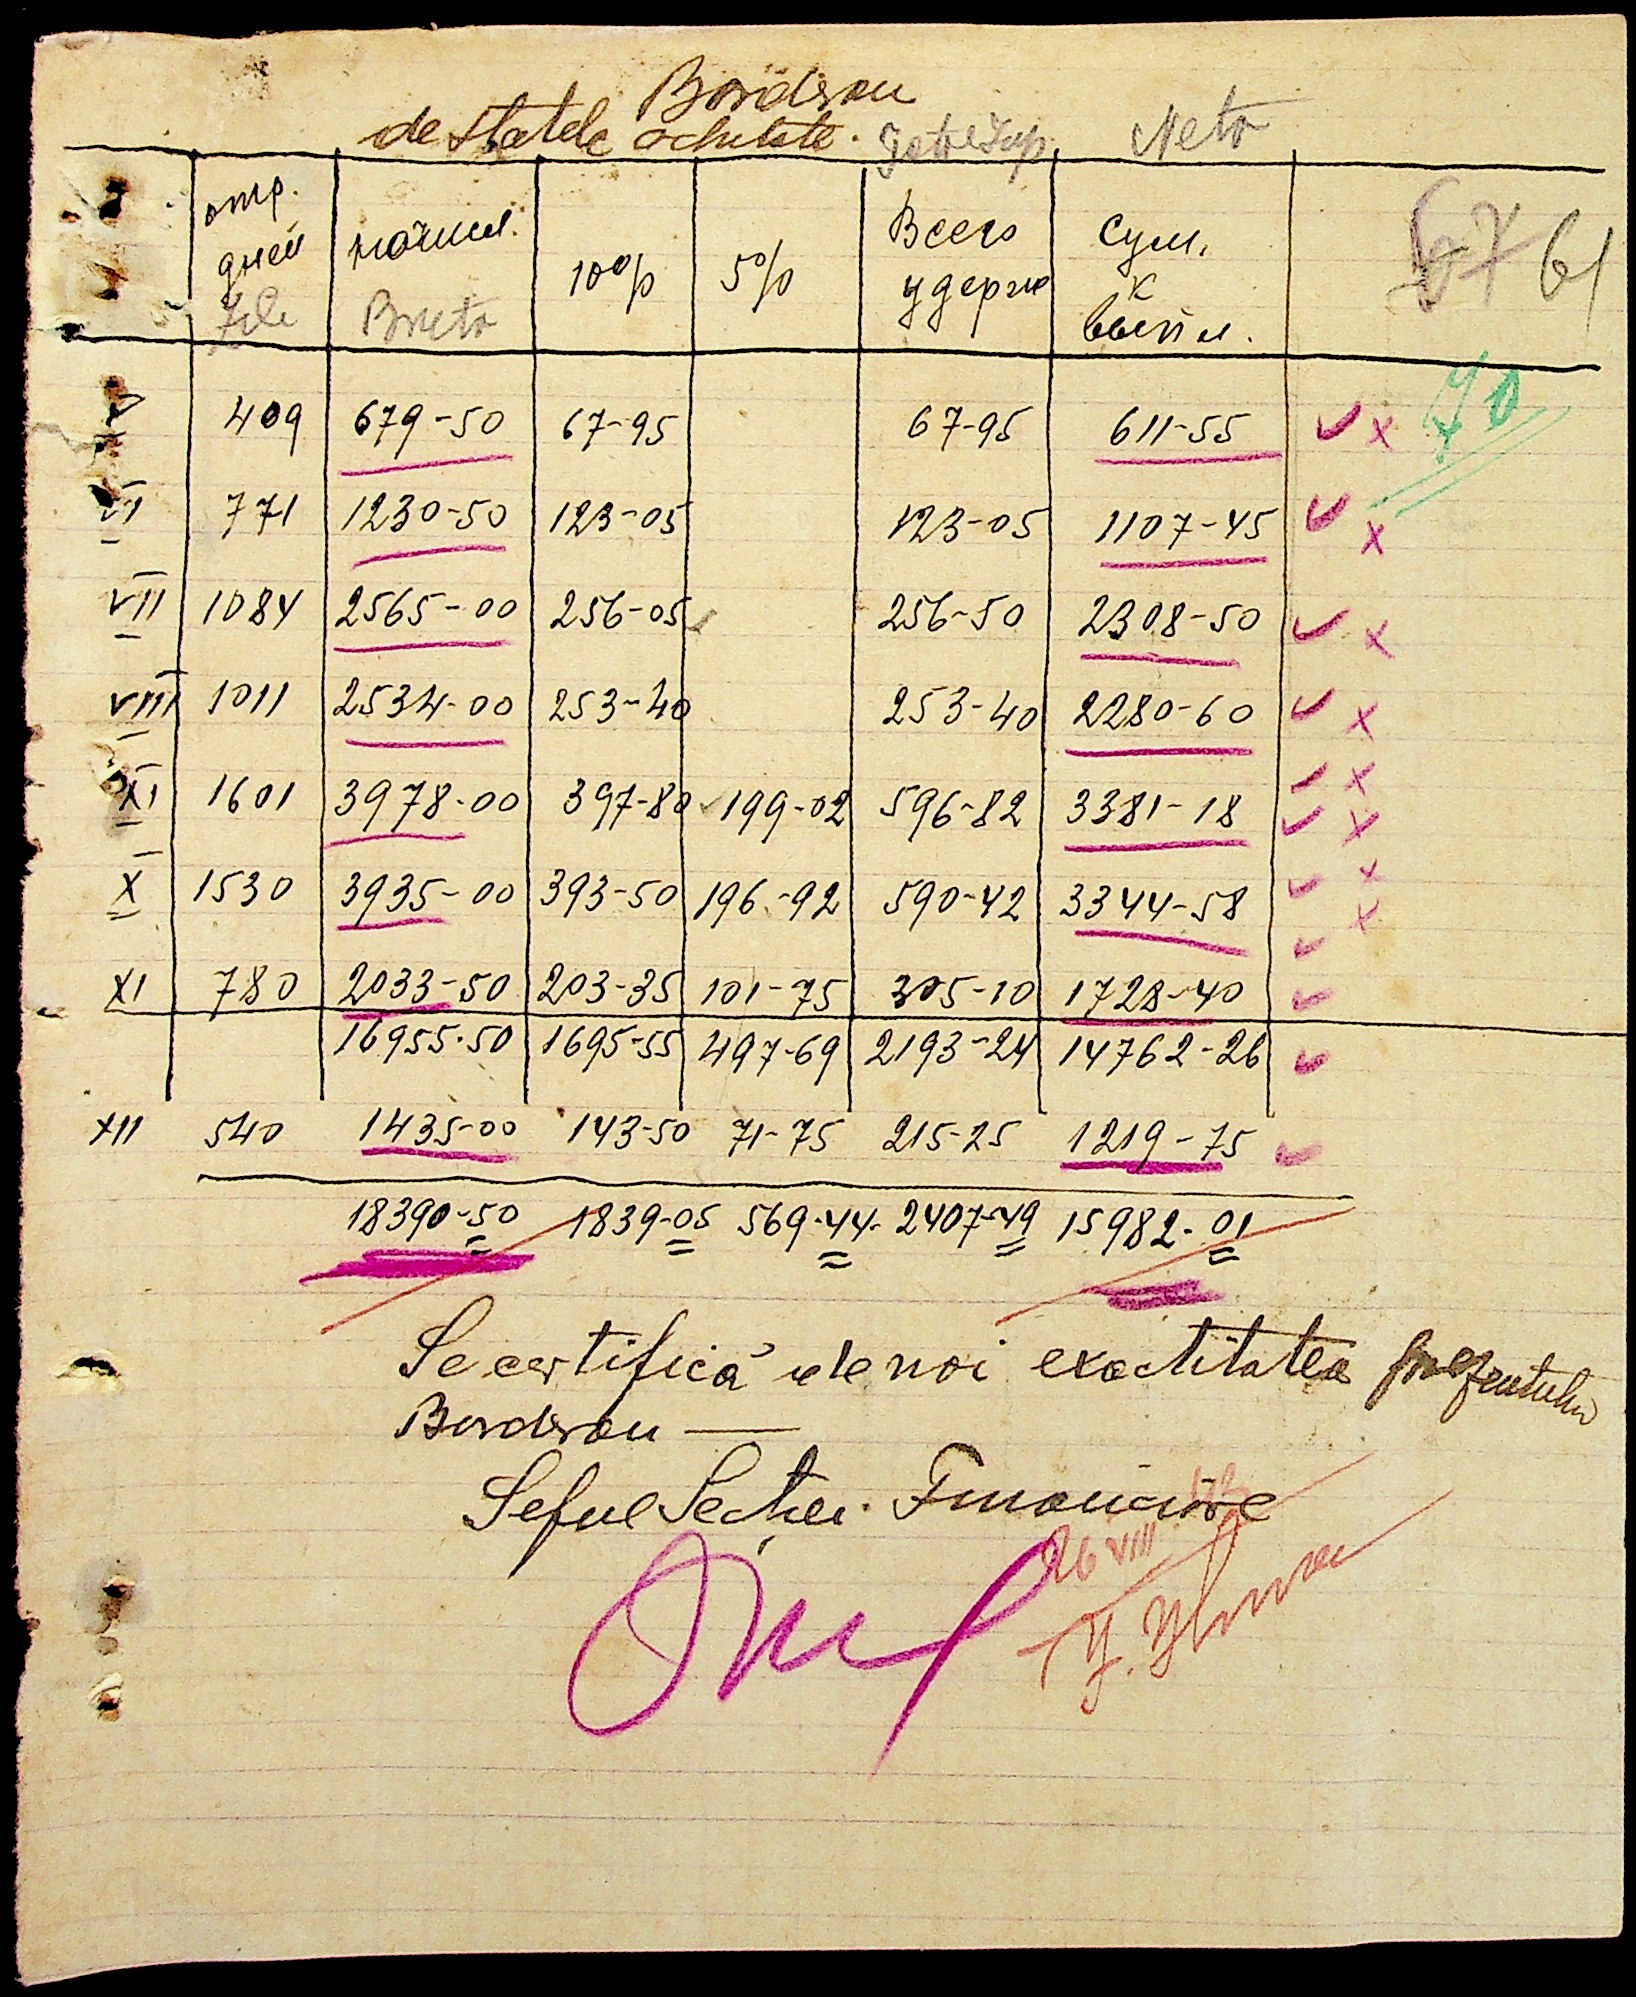 Borderou
de statele achitate. Neto
отр. дней Zile
начисл. Bruto
10% 5%
Всего удерж
Сум. к выпл.
67 61
70
V 409 679-50 67-95 67-95 611-55
VI 771 1230-50 123-05 123-05 1107-45
VII 1084 2565-00 256-05 256-50 2308-50
VIII 1011 2534-00 253-40 253-40 2280-60
XI 1601 3978-00 397-80 199-02 596-82 3381-18
X 1530 3935-00 393-50 196-92 590-42 3344-58
XI 780 2033-50 203-35 101-75 305-10 1728-40
16955-50 1695-55 497-69 2193-24 14762-26
XII 540 1435-00 143-50 71-75 215-25 1219-75
18390-50 1839-05 569-44 2407-49 15982-01
Se certifică de noi exactitatea prezentului
Borderou —
Seful Secției Financiare
26 VIII